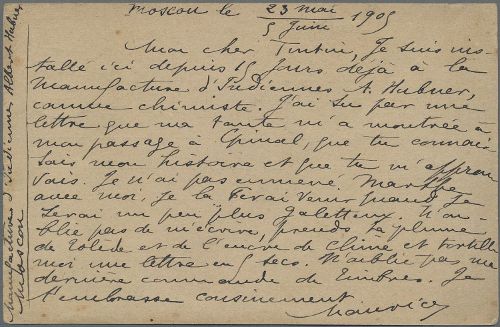 Moscou le 23 Mai 1905
5 Juin
Mon cher Tintin, Je suis ins-
tallé ici depuis 15 jours déjà à la
Manufacture d'Indiennes A. Hubner,
comme chimiste. J'ai su par une
lettre que ma tante m'a montrée à
mon passage à Epinal, que tu connais-
sais mon histoire et que tu m'approu
vais. Je n'ai pas emmené Marthe
avec moi, je la ferai venir quand je
serai un peu plus galetteux. N'ou-
blie pas de m'écrire, prends ta plume
de et de l'encre de Chine et tortille
moi une lettre en 5 secs. N'oublie pas ma
dernière commande de timbres. Je
t'embrasse cousinement.
Maurice
Manufactures d'Indiennes Albert Hubner
Moscou